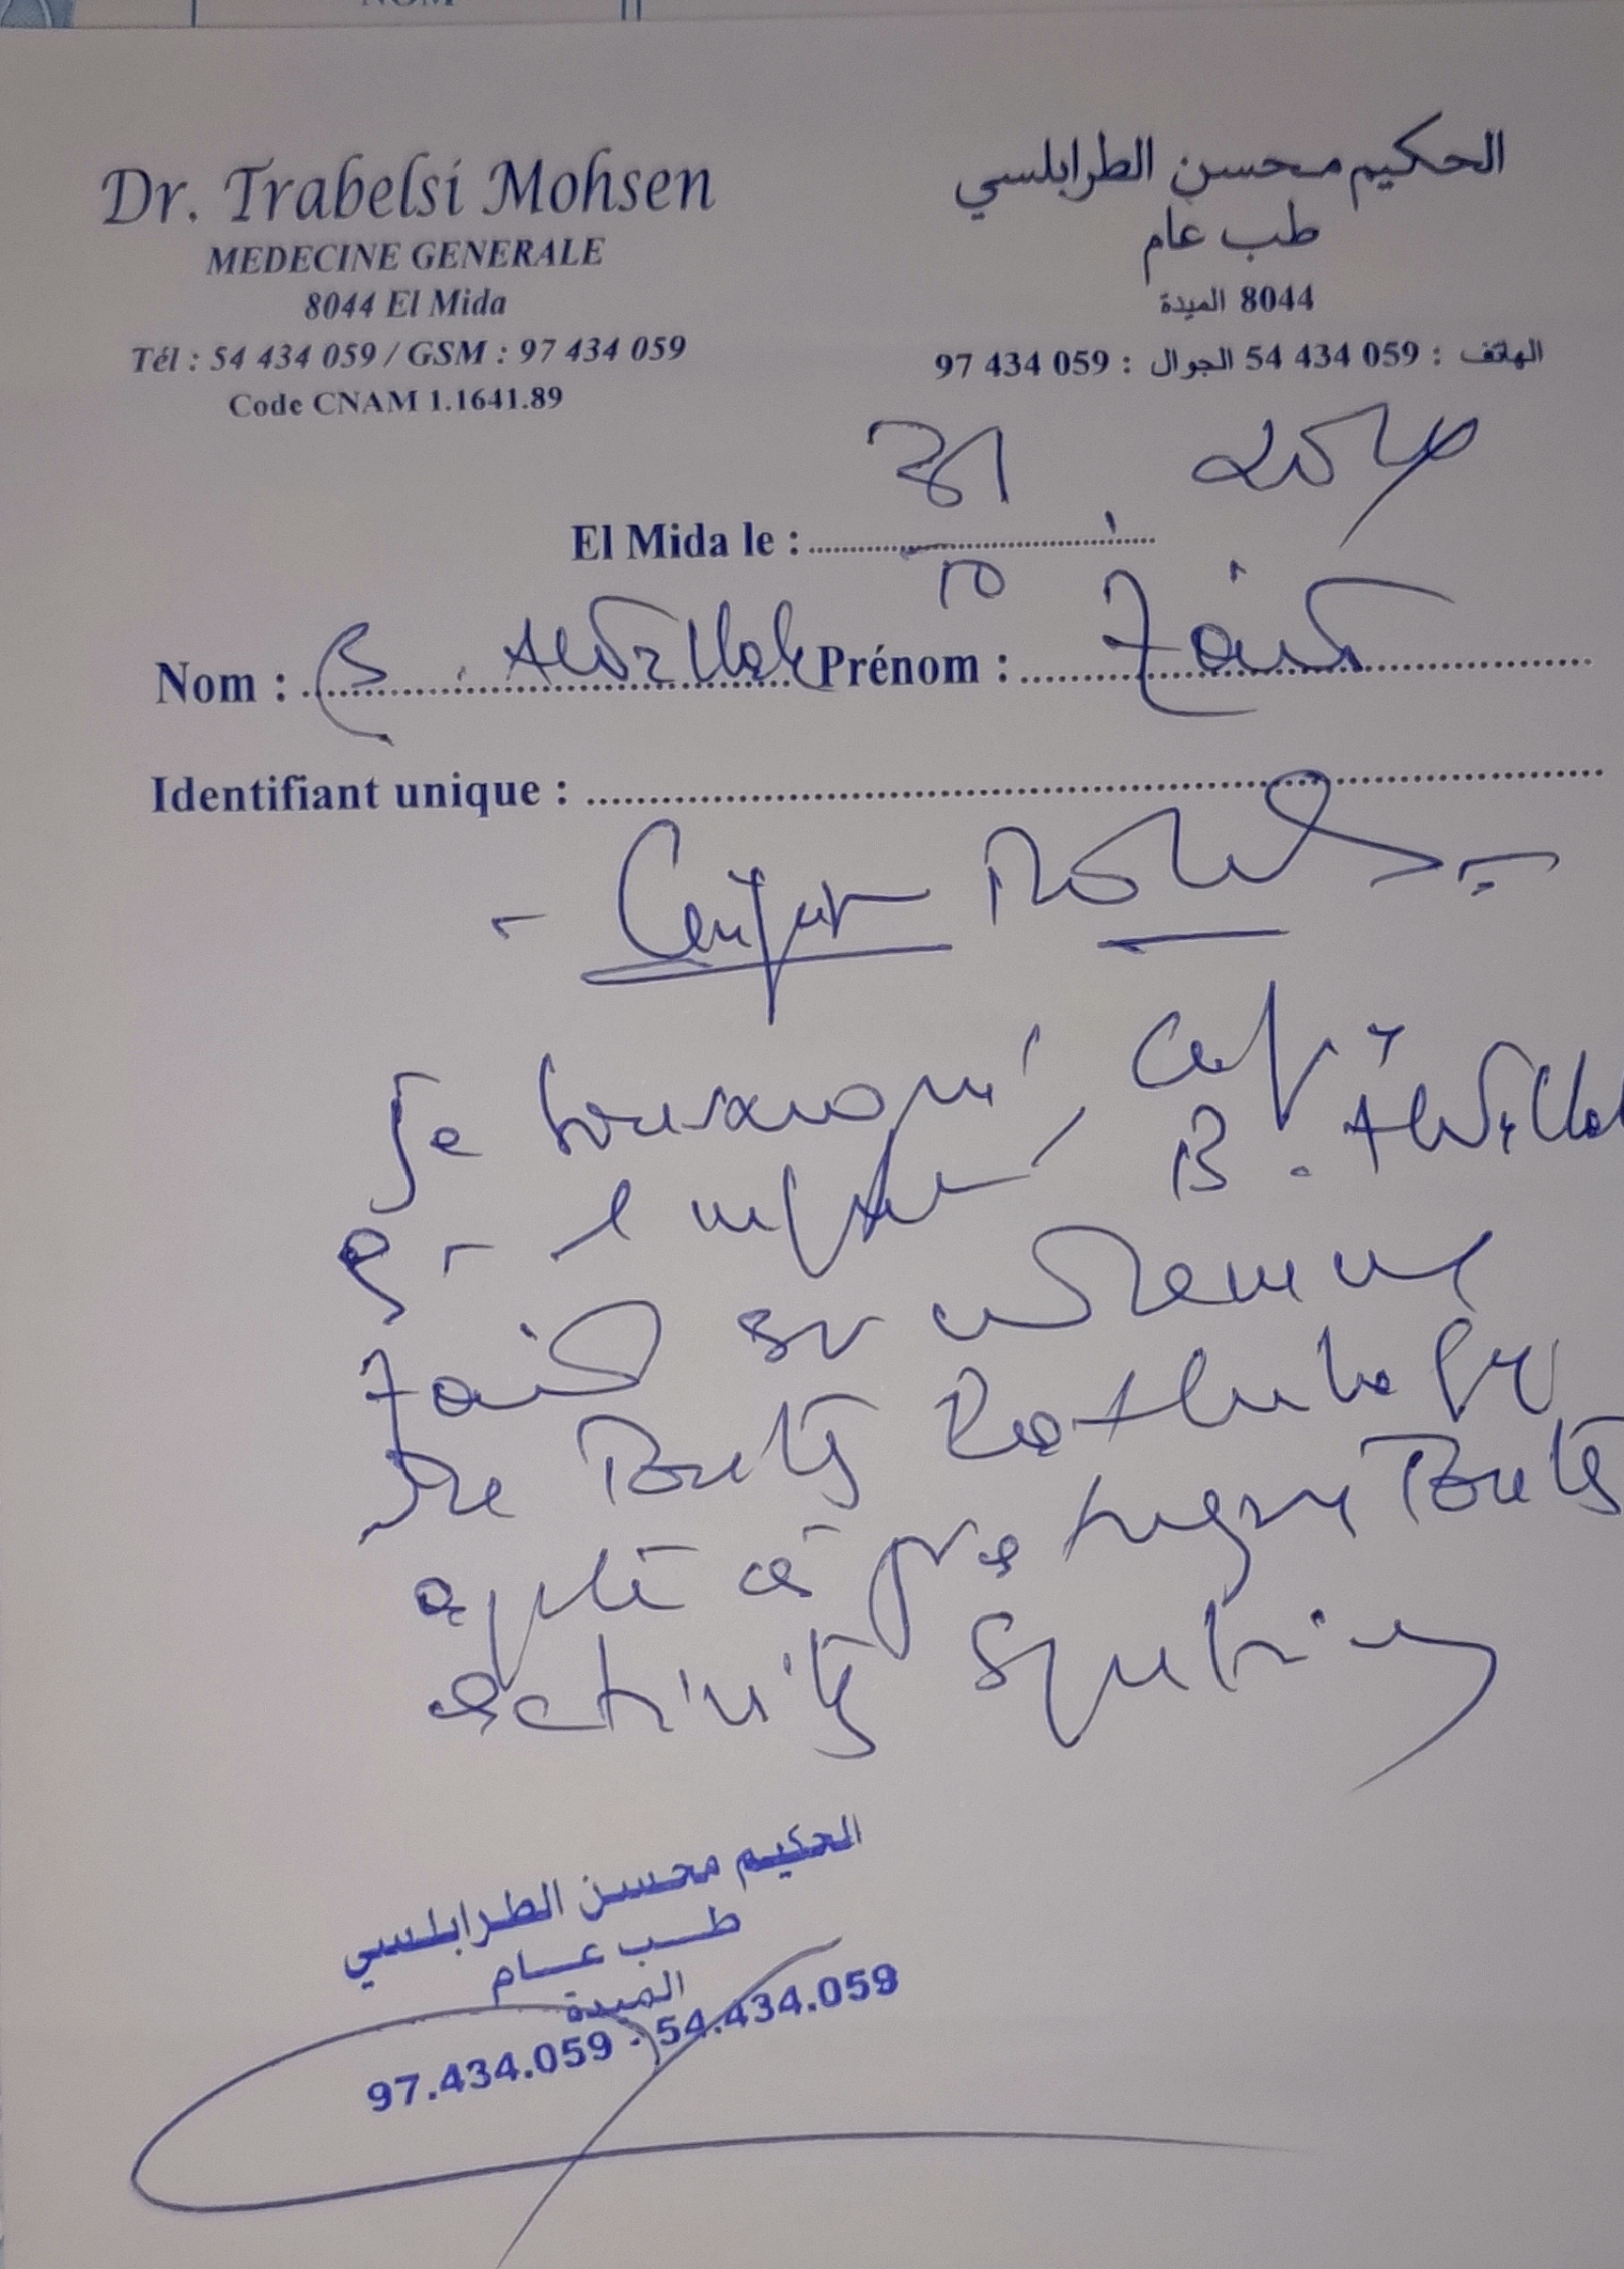 NOM
Dr. Trabelsi Mohsen
MEDECINE GENERALE
8044 El Mida
Tél : 54 434 059 / GSM : 97 434 059
Code CNAM 1.1641.89
الحكيم محسن الطرابلسي
طب عام
8044 الميدة
الهاتف : 059 434 54 الجوال : 059 434 97
El Mida le : 31 10
Nom : B. Abdellah Prénom : Zaid
Identifiant unique :
- Certificat Médical -
Je soussigné, certifie
que l'enfant, B. Abdellah
Zaid est indemne
de toute pathologie
apte à pratiquer toute
activité sportive
الحكيم محسن الطرابلسي
طب عام
الميدة
97.434.059 - 54.434.059